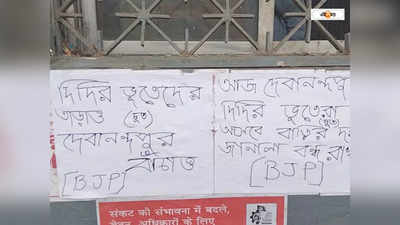 দিদির ভূতেদের
তাড়াও (দূত)
দেবানন্দপুর
বাঁচাও
[BJP]
আজ দেবানন্দপু
দিদির ভূতেরা
আসবে (দূত) বাড়ির দর
জানালা বন্ধ রাখ
[BJP]
संकट को संभावना में बदले,
अधिकारों के लिए